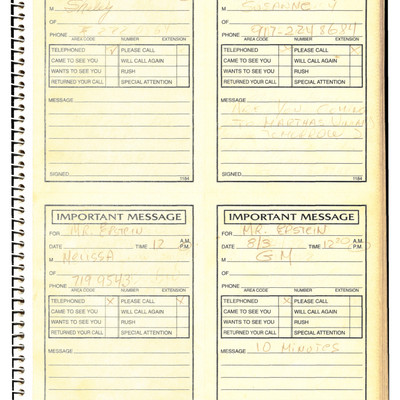 M Smiley
OF
PHONE
AREA CODE NUMBER EXTENSION
TELEPHONED X PLEASE CALL
CAME TO SEE YOU WILL CALL AGAIN
WANTS TO SEE YOU RUSH
RETURNED YOUR CALL SPECIAL ATTENTION
MESSAGE
SIGNED
1184
M
OF
PHONE 917-
AREA CODE NUMBER EXTENSION
TELEPHONED X PLEASE CALL X
CAME TO SEE YOU WILL CALL AGAIN
WANTS TO SEE YOU RUSH
RETURNED YOUR CALL SPECIAL ATTENTION
MESSAGE
ARE YOU COMING
TO MARTHAS
TOMORROW ?
SIGNED
1184
IMPORTANT MESSAGE
FOR MR. EPSTEIN
DATE TIME 12 A.M. P.M.
M MELISSA
OF
PHONE 719 9543
AREA CODE NUMBER EXTENSION
TELEPHONED X PLEASE CALL X
CAME TO SEE YOU WILL CALL AGAIN
WANTS TO SEE YOU RUSH
RETURNED YOUR CALL SPECIAL ATTENTION
MESSAGE
IMPORTANT MESSAGE
FOR MR. EPSTEIN
DATE 8/3 TIME 12 A.M. P.M.
M GM
OF
PHONE
AREA CODE NUMBER EXTENSION
TELEPHONED PLEASE CALL
CAME TO SEE YOU WILL CALL AGAIN
WANTS TO SEE YOU RUSH
RETURNED YOUR CALL SPECIAL ATTENTION
MESSAGE 10 MINUTES